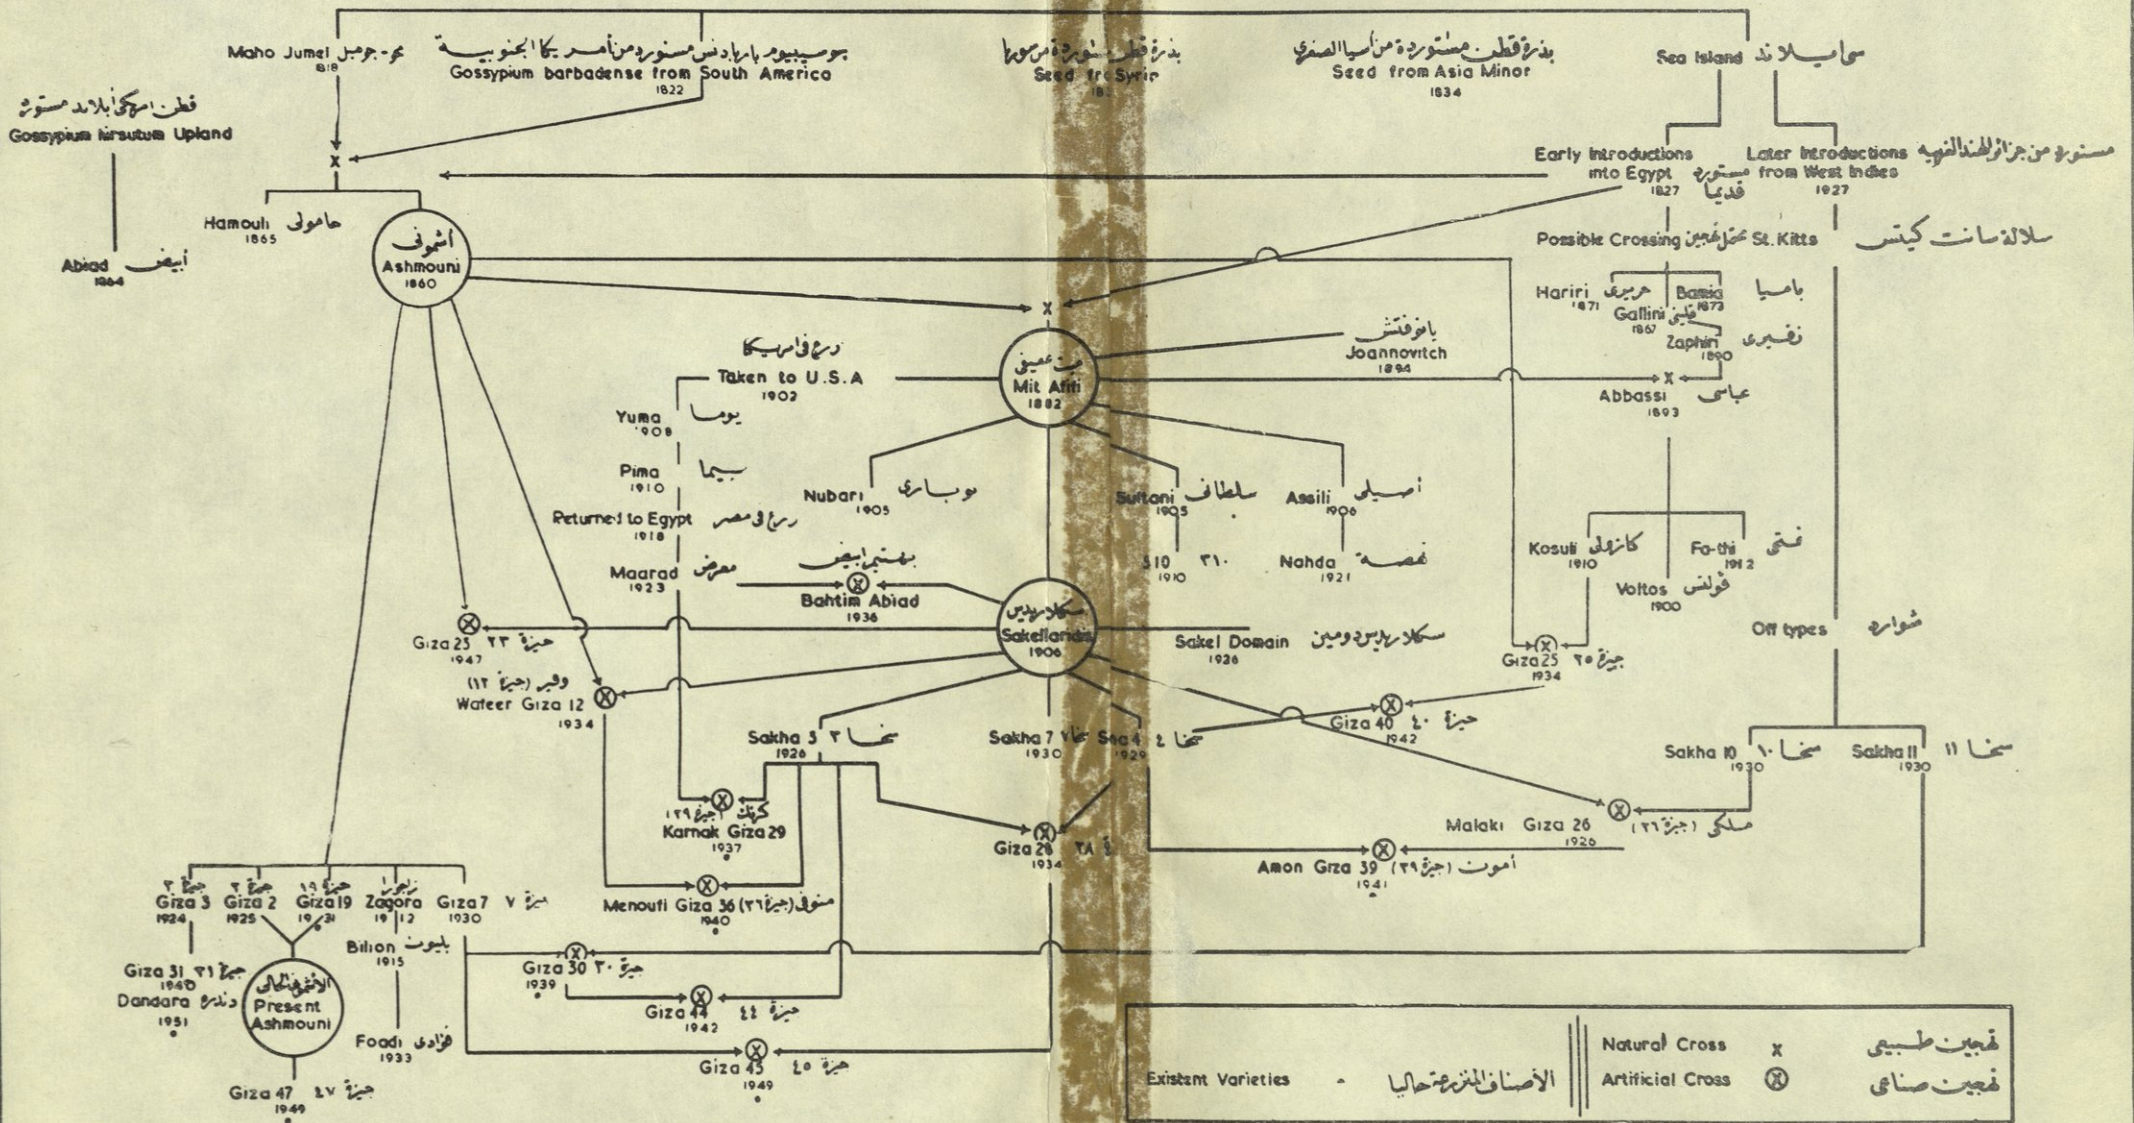 Maho Jumel محو - جوميل
1818
جوسيبيوم باربادنس مستورد من أمريكا الجنوبية
Gossypium barbadense from South America
1822
Seed
بذرة قطن مستوردة من أسيا الصغرى
Seed from Asia Minor
1834
Sea Island سى ايلاند
Gossypium hirsutum Upland
Abiad أبيض
1864
Hamouli حامولى
1865
أشمونى
Ashmouni
1860
Early Introductions
into Egypt مستورد قديما
1827
Later Introductions
from West Indies
1927
مستورد من جزائر الهند الغربية
Possible Crossing محتمل تهجين
St. Kitts سلالة سانت كيتس
Hariri حريرى
1871
Bamia باميا
1873
Gallini قلينى
1867
Zaphiri زفيرى
1890
Abbassi عباسى
1893
ميت عفيفى
Mit Afifi
1882
يانوفتش
Joannovitch
1894
زرع فى امريكا
Taken to U.S.A
1902
Yuma يوما
1908
Pima بيما
1910
Returned to Egypt زرع فى مصر
1918
Maarad معرض
1923
بهتيم ابيض
Bahtim Abiad
1936
Nubari نوبارى
1905
Sultani
1905
Assili أصيلى
1906
310 ٣١٠
1910
Nahda نهضة
1921
Kosuli
1910
Fa-thi فتحى
1912
Voltos فولتس
1900
سكلاريدس
Sakellaridis
1906
Sakel Domain سكلاريدس دومين
1926
Giza 23 جيزة ٢٣
1947
وفير (جيزة ١٢)
Wafeer Giza 12
1934
Giza 25 جيزة ٢٥
1934
Off types شوارد
Giza 40 جيزة ٤٠
1942
Sakha 3 سخا ٣
1926
Sakha 7 سخا ٧
1930
4 سخا ٤
1929
Sakha 10 سخا ١٠
1930
Sakha 11 سخا ١١
1930
كرنك (جيزة ٢٩)
Karnak Giza 29
1937
Giza 28 ٢٨
1934
Malaki Giza 26 ملكى (جيزة ٢٦)
1926
Amon Giza 39 أمون (جيزة ٣٩)
1941
Menoufi Giza 36 منوفى (جيزة ٣٦)
1940
جيزة ٣
Giza 3
1924
جيزة ٢
Giza 2
1925
جيزة ١٩
Giza 19
1931
زاجورا
Zagora
1912
Giza 7 جيزة ٧
1930
Bilion بليون
1915
Giza 31 جيزة ٣١
1940
Dandara دندرة
1951
الأشمونى الحالى
Present
Ashmouni
Foadi فؤادى
1933
Giza 47 جيزة ٤٧
1949
Giza 30 جيزة ٣٠
1939
Giza 44 جيزة ٤٤
1942
Giza 45 جيزة ٤٥
1949
Existent Varieties - الأصناف المنزرعة حاليا
Natural Cross x تهجين طبيعى
Artificial Cross ⓧ تهجين صناعى